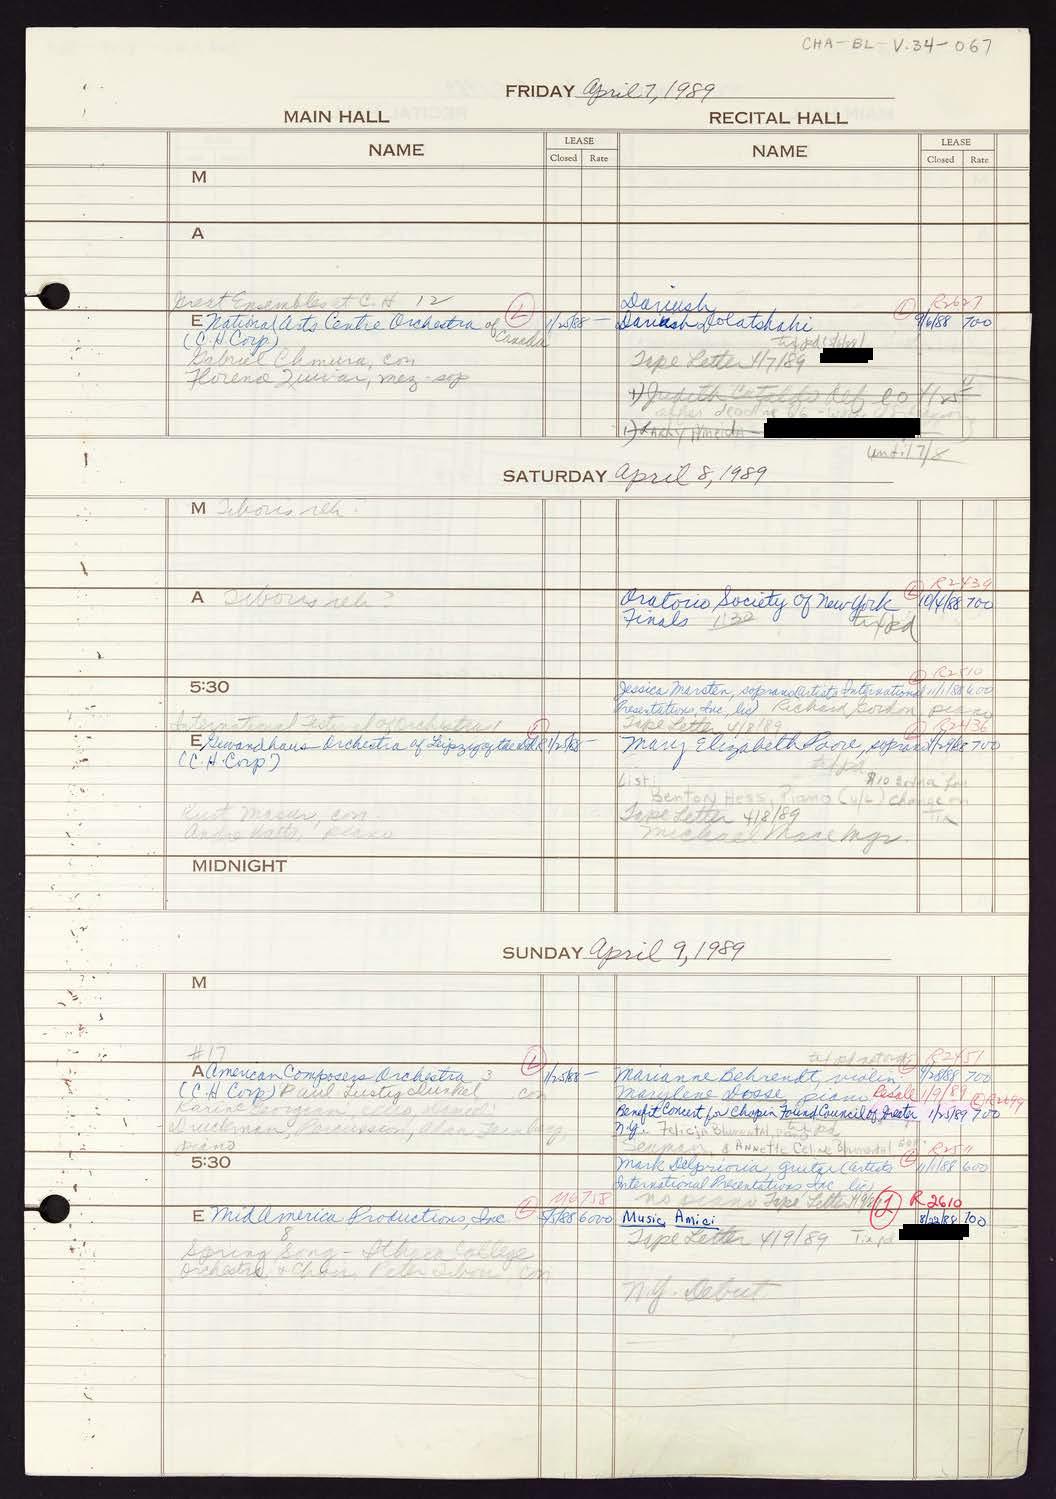 CHA-BL-V.34-067
FRIDAY April 7, 1989
MAIN HALL
RECITAL HALL
NAME
LEASE
Closed Rate
NAME
LEASE
Closed Rate
M
A
Great Ensembles at C.H 12
E National Arts Centre Orchestra of Canada 1/25/88 —
(C.H Corp)
Gabriel Chmura, con
Florence Quivar, mez-sop
Dariush
Dariush Dolatshahi
R2627
9/6/88 700
tix pd
Tape Letter 4/7/89
1) Judith
until 7/8
SATURDAY April 8, 1989
M Tiboris reh?
A Tiboris reh?
R2439
Oratorio Society of New York 10/4/88 700
Finals 1:30 tix pd
5:30
R2510
Jessica Marsten, soprano (Artists International 11/1/88 600
Presentations, Inc, lic) Richard Gordon piano
Tape Letter 4/8/89
International Festival of Orchestras I
E Gewandhaus Orchestra of Leipzig 1/25/88 —
(C.H. Corp)
Kurt Masur, con.
Andre Watts, piano
R2436
Mary Elizabeth Poore, soprano 700
tix pd
List:
Benton Hess, Piano (u/l) change on
$10 extra for
Tix
Tape Letter 4/8/89
Michael Mace Mgr.
MIDNIGHT
SUNDAY April 9, 1989
M
#17
A American Composers Orchestra 3 1/25/88 —
(C.H Corp) Paul Lustig Dunkel con
Druckman, Percussion,
piano
R2451
Marianne Behrendt, violin 700
Marylene Dosse, piano Resale 1/9/89 R2699
Benefit Concert for Chopin Found Council of Greater 1/25/89 700
N.Y. Felicja Blumental, piano tix pd
& Annette Celine Blumental
5:30
R2511
guitar (Artists 11/1/88 600
International Presentations Inc lic)
no piano Tape Letter 4/9/89
M6758
E MidAmerica Productions, Inc 6000
8
Spring Song - Ithaca College
Orchestra & Choir, Peter Tiboris, con
R2610
Music Amici 8/22/88 700
Tape Letter 4/9/89 Tix pd
N.Y. Debut